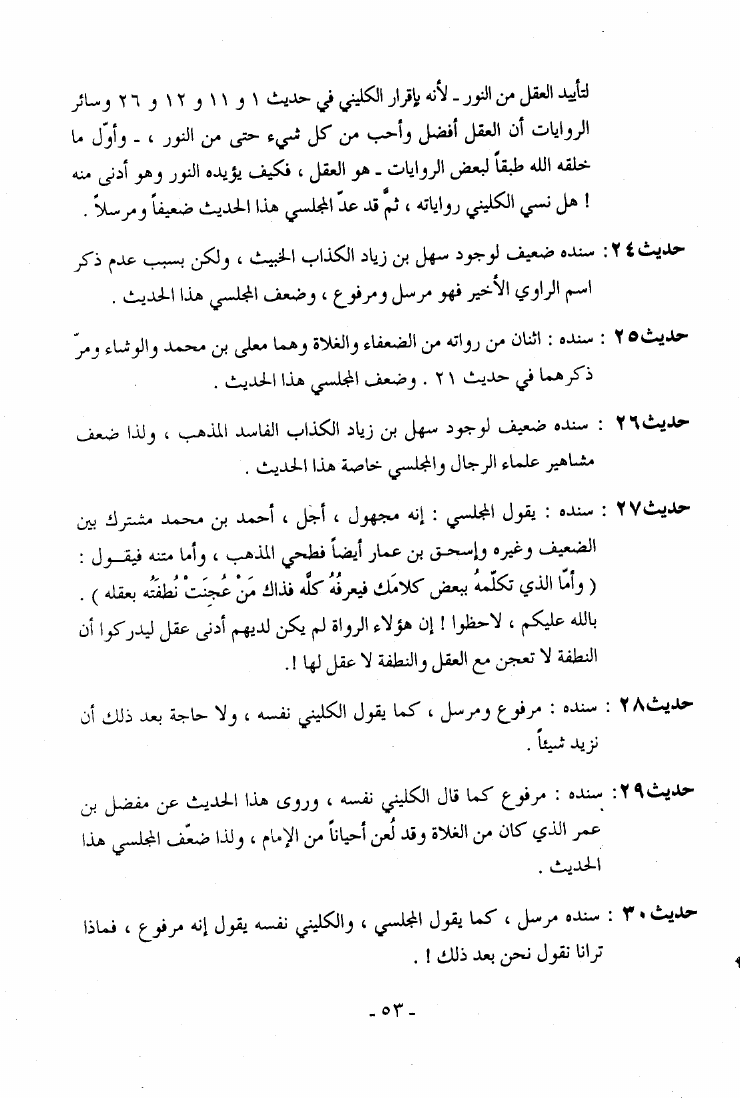 لتأييد العقل من النور ـ لأنه بإقرار الكليني في حديث ١ و ١١ و ١٢ و ٢٦ وسائر
الروايات أن العقل أفضل وأحب من كل شيء حتى من النور ، ـ وأوّل ما
خلقه الله طبقاً لبعض الروايات ـ هو العقل ، فكيف يؤيده النور وهو أدنى منه
! هل نسي الكليني رواياته ، ثمَّ قد عدّ المجلسي هذا الحديث ضعيفاً ومرسلاً .
حديث٢٤ : سنده ضعيف لوجود سهل بن زياد الكذاب الخبيث ، ولكن بسبب عدم ذكر
اسم الراوي الأخير فهو مرسل ومرفوع ، وضعف المجلسي هذا الحديث .
حديث٢٥ : سنده : اثنان من رواته من الضعفاء والغلاة وهما معلى بن محمد والوشاء ومرّ
ذكرهما في حديث ٢١ . وضعف المجلسي هذا الحديث .
حديث٢٦ : سنده ضعيف لوجود سهل بن زياد الكذاب الفاسد المذهب ، ولذا ضعف
مشاهير علماء الرجال والمجلسي خاصة هذا الحديث .
حديث٢٧ : سنده : يقول المجلسي : إنه مجهول ، أجل ، أحمد بن محمد مشترك بين
الضعيف وغيره وإسحق بن عمار أيضاً فطحي المذهب ، وأما متنه فيقول :
( وأمّا الذي تكلّمهُ ببعض كلامك فيعرفُهُ كلَّه فذاك مَنْ عُجِنَتْ نُطفَتُه بعقله ) .
بالله عليكم ، لاحظوا ! إن هؤلاء الرواة لم يكن لديهم أدنى عقل ليدركوا أن
النطفة لا تعجن مع العقل والنطفة لا عقل لها !.
حديث٢٨ : سنده : مرفوع ومرسل ، كما يقول الكليني نفسه ، ولا حاجة بعد ذلك أن
نزيد شيئاً .
حديث٢٩ : سنده : مرفوع كما قال الكليني نفسه ، وروى هذا الحديث عن مفضل بن
عمر الذي كان من الغلاة وقد لُعن أحياناً من الإمام ، ولذا ضعّف المجلسي هذا
الحديث .
حديث٣٠ : سنده مرسل ، كما يقول المجلسي ، والكليني نفسه يقول إنه مرفوع ، فماذا
ترانا نقول نحن بعد ذلك ! .
ـ ٥٣ ـ